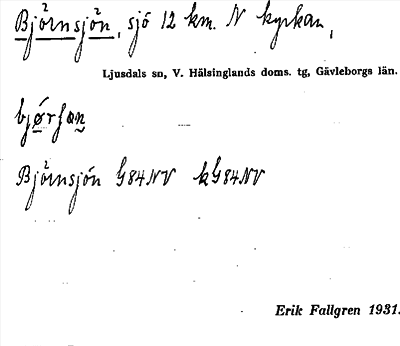 Björnsjön, sjö 12 km. N kyrkan,
Ljusdals sn, V. Hälsinglands doms. tg, Gävleborgs län.
Björnsjön G84NV kG84NV
Erik Fallgren 1931.